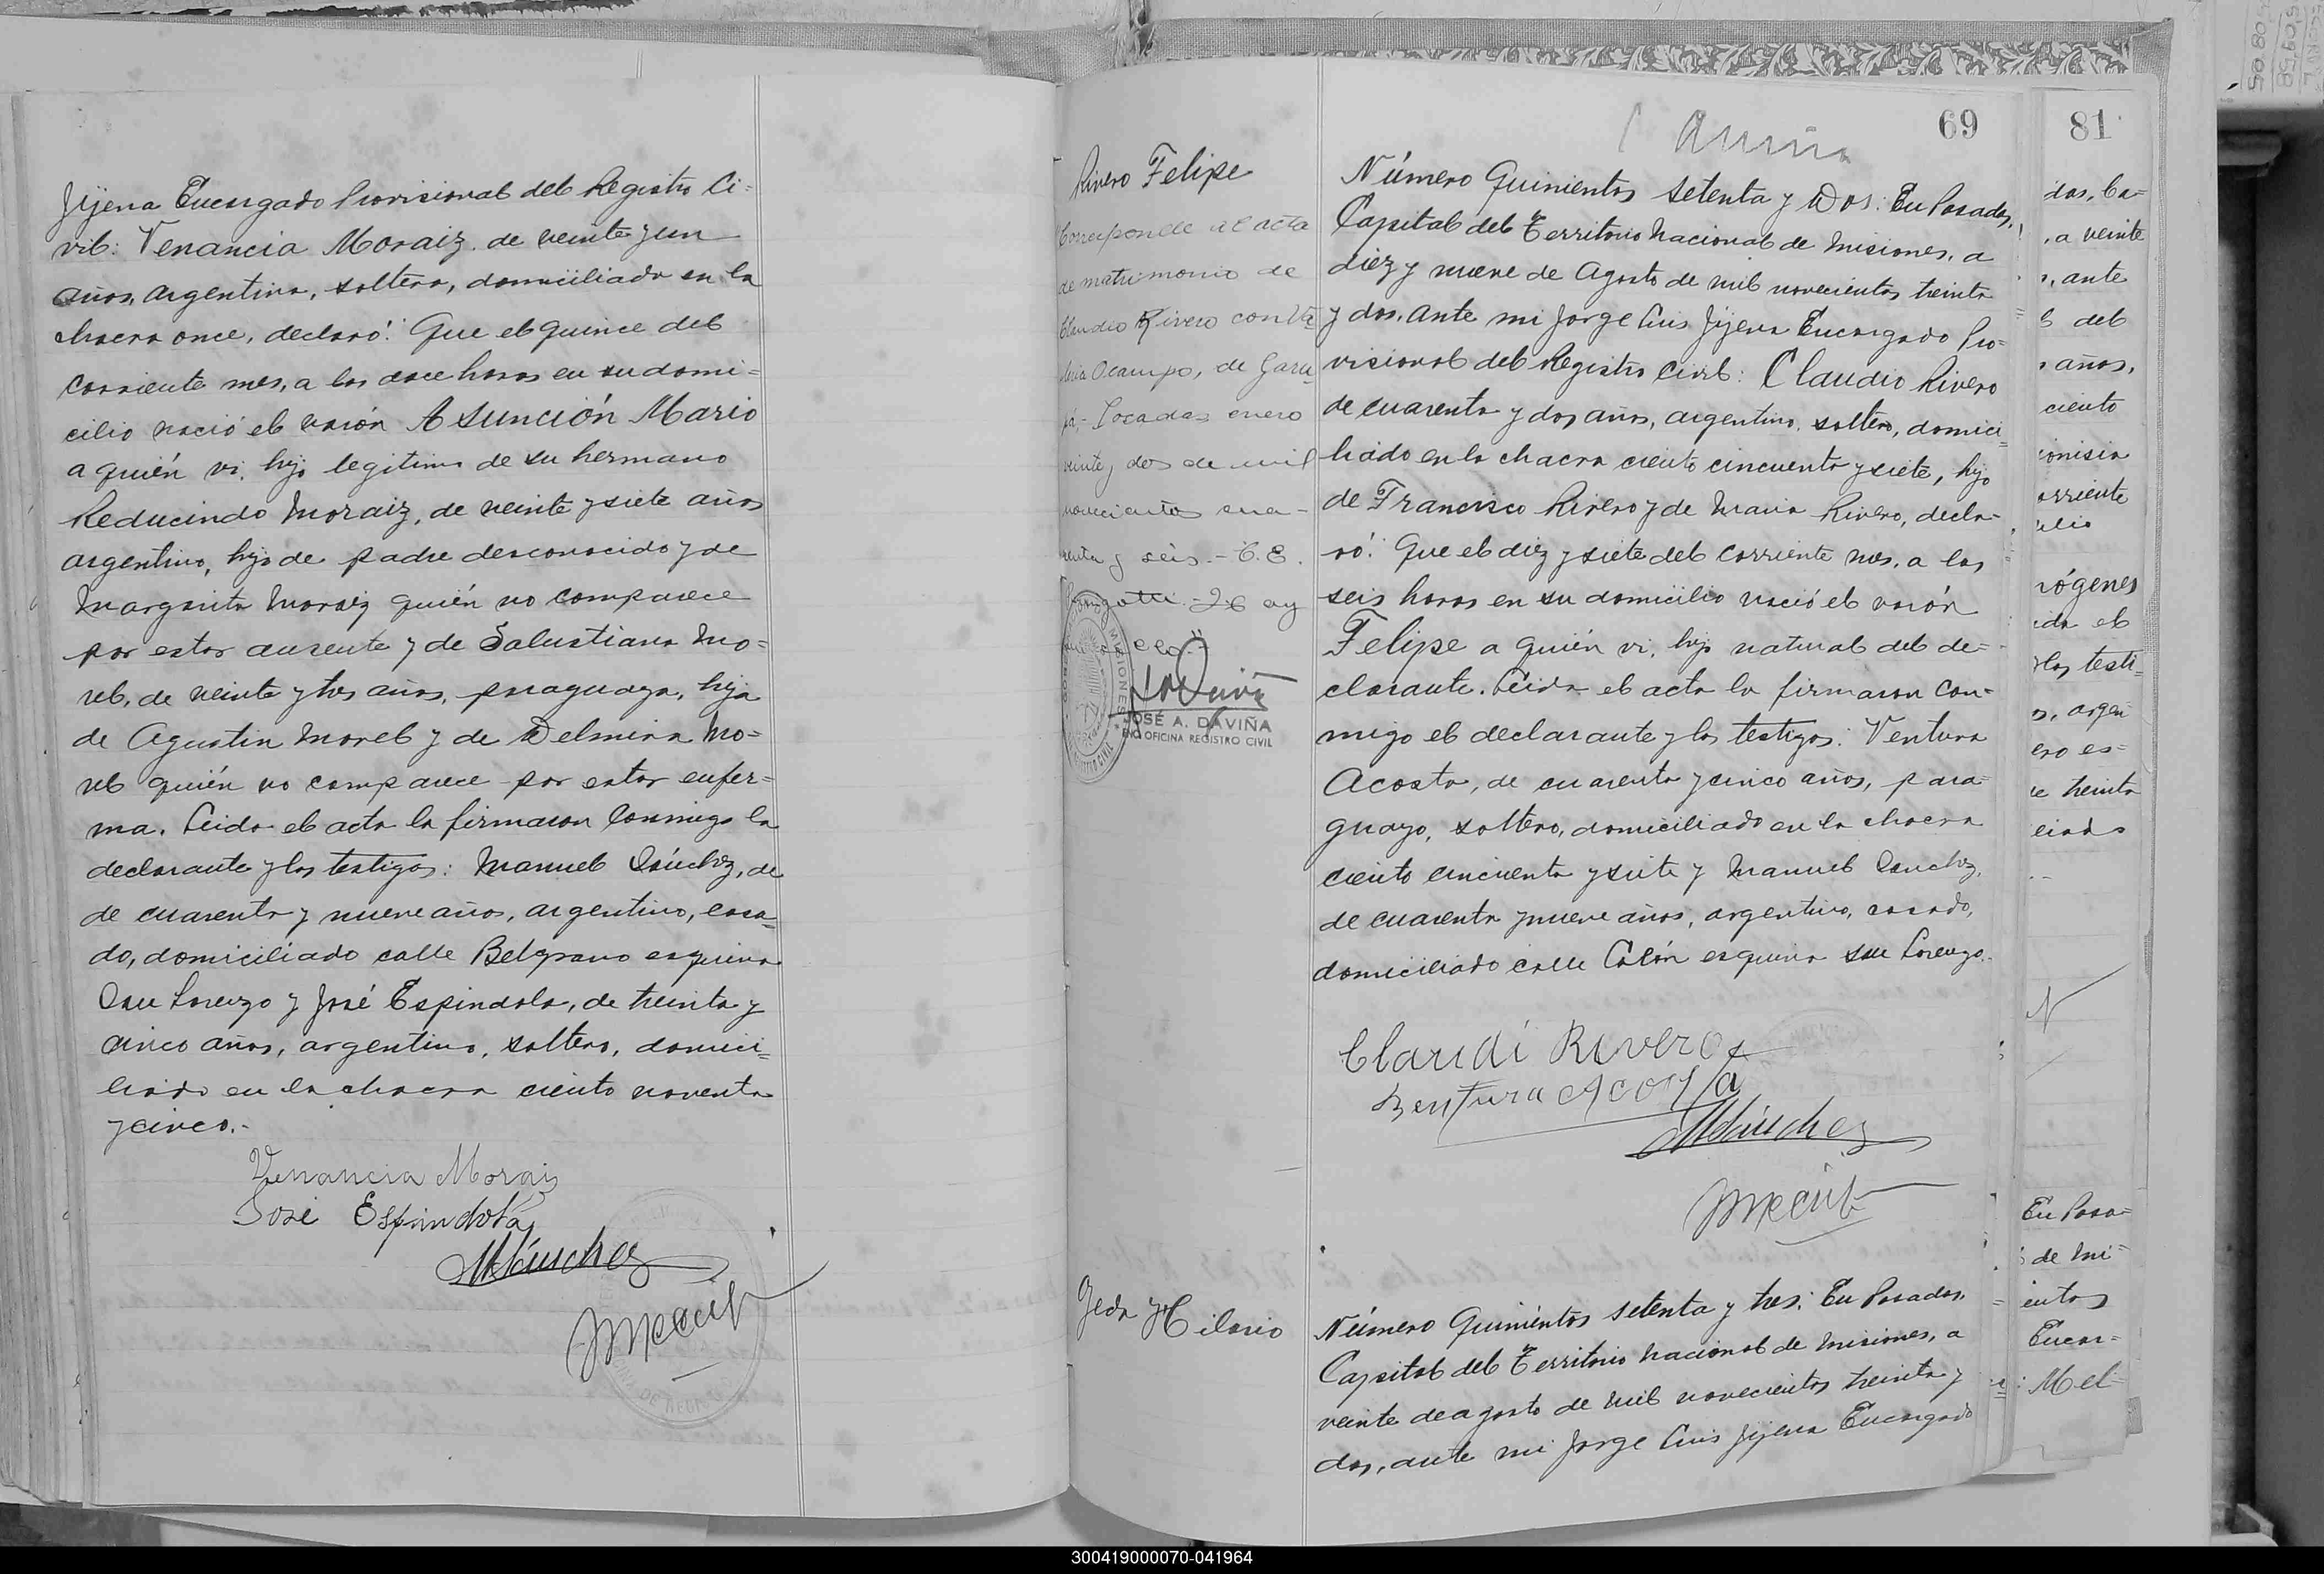 Jijena Encargado Provisional del Registro Ci=
vil: Venancia Moraiz, de veinte y un
años, argentina, soltera, domiciliada en la
chacra once, declaró: Que el quince del
corriente mes, a las doce horas en su domi=
cilio nació el varón Asunción Mario
a quién vi, hijo legitimo de su hermano
Reducindo Moraiz, de veinte y siete años
argentino, hijo de padre desconocido y de
Margarita Moraiz quién no comparece
por estar ausente y de Salustiana Mo=
rel, de veinte y tres años, paraguaya, hija
de Agustin Morel y de Delmira Mo=
rel quién no comparece por estar enfer=
ma. Leida el acta la firmaron conmigo la
declarante y los testigos: Manuel Sánchez, de
de cuarenta y nueve años, argentino, casa=
do, domiciliado calle Belgrano esquina
San Lorenzo y José Espindola, de treinta y
cinco años, argentino, soltero, domici=
liado en la chacra ciento noventa
y cinco.-
Venancia Moraiz
José Espindola
MSánchez
69
Rivero Felipe
Corresponde al acta
de matrimonio de
Claudio Rivero con Va
leria Ocampo, de Garu
pá,- Posadas enero
veinte y dos de mil
novecientos cua-
renta y seis.- C.E.
JOSÉ A. DAVIÑA
ENC OFICINA REGISTRO CIVIL
Número Quinientos setenta y Dos: En Posadas,
Capital del Territorio Nacional de Misiones, a
diez y nueve de Agosto de mil novecientos treinta
y dos, ante mi Jorge Luis Jijena Encargado Pro=
visional del Registro Civil: Claudio Rivero
de cuarenta y dos años, argentino, soltero, domici=
liado en la chacra ciento cincuenta y siete, hijo
de Francisco Rivero y de Maria Rivero, decla-
ró: Que el diez y siete del corriente mes, a las
seis horas en su domicilio nació el varón
Felipe a quién vi, hijo natural del de=
clarante. Leida el acta la firmaron con-
migo el declarante y los testigos: Ventura
Acosta, de cuarenta y cinco años, para=
guayo, soltero, domiciliado en la chacra
ciento cincuenta y siete y Manuel Sanchez,
de cuarenta y nueve años, argentino, casado,
domiciliado calle Colón esquina San Lorenzo.
Claudi Rivero
Bentura Acosta
MSánchez
Número Quinientos setenta y tres: En Posadas,
Capital del Territorio Nacional de Misiones, a
veinte de agosto de mil novecientos treinta y
dos, ante mi Jorge Luis Jijena Encargado
Hilario
81
, a veinte
, ante
del
años,
ciento
orriente
rógenes
ida el
los testi=
s, argen
ero es=
e treinta
En Posa=
de Mi=
entos
Encar=
Mel
300419000070-041964